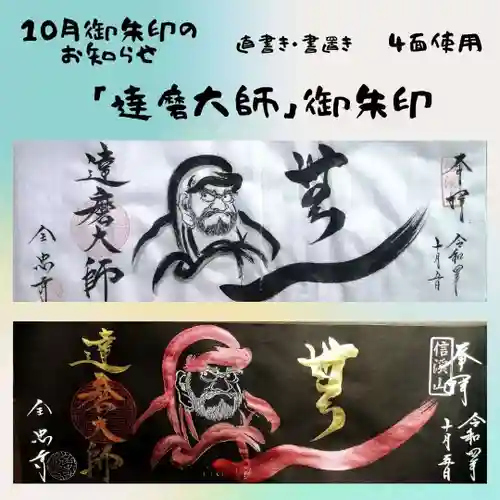 10月御朱印の
お知らせ
直書き・書置き
4面使用
「達磨大師」御朱印
奉拝
令和四年
十月五日
無
達磨大師
全忠寺
奉拝
信渓山
令和四年
十月五日
無
達磨大師
全忠寺